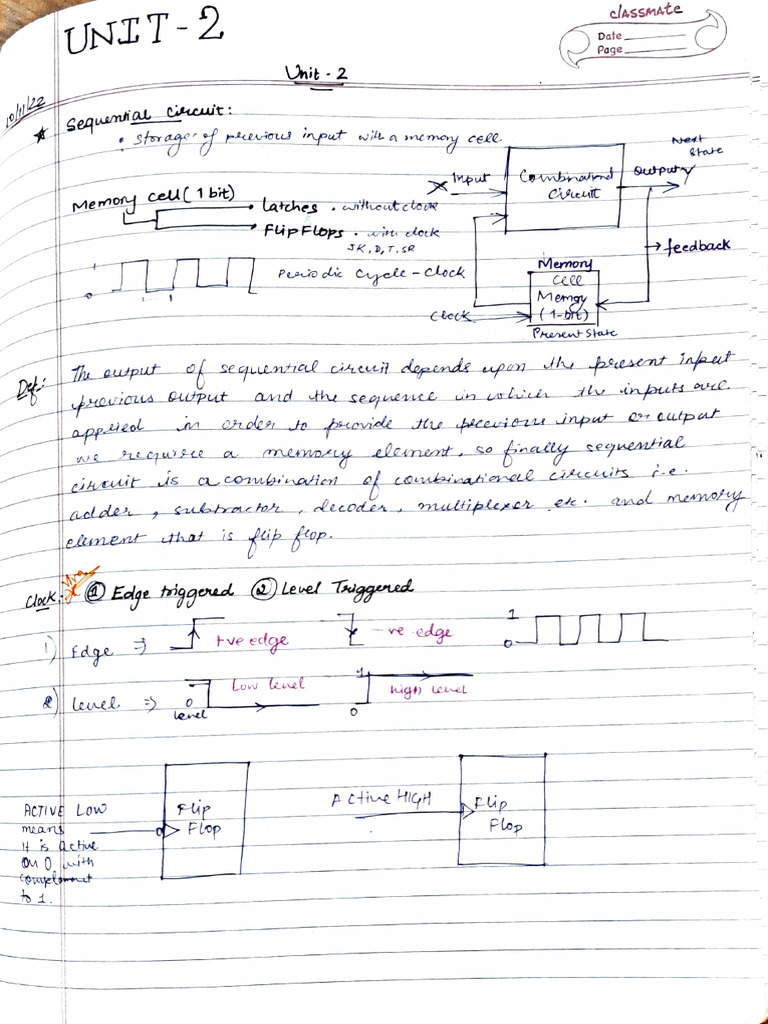 UNIT-2
classmate
Date
Page
Unit - 2
10/11/22
Sequential circuit:
• Storage of previous input with a memory cell.
Memory cell (1 bit)
• Latches . without clock
• Flip Flops . with clock
JK, D, T, SR
1
0
Periodic Cycle - Clock
Input
Combinational
Circuit
Output
Next
State
feedback
Memory
Cell
Memory
(1-bit)
Present State
Clock
Def:
The output of sequential circuit depends upon the present input
previous output and the sequence in which the inputs are
applied in order to provide the previous input or output
we require a memory element, so finally sequential
circuit is a combination of combinational circuits i.e.
adder, subtractor, decoder, multiplexer etc. and memory
element that is flip flop.
Clock:
① Edge triggered ② Level Triggered
1) Edge ⇒
+ve edge
-ve edge
1
0
2) Level ⇒
0
level
Low level
1
0
high level
ACTIVE LOW
means
it is active
on 0 with
complement
to 1.
Flip
Flop
Active HIGH
Flip
Flop